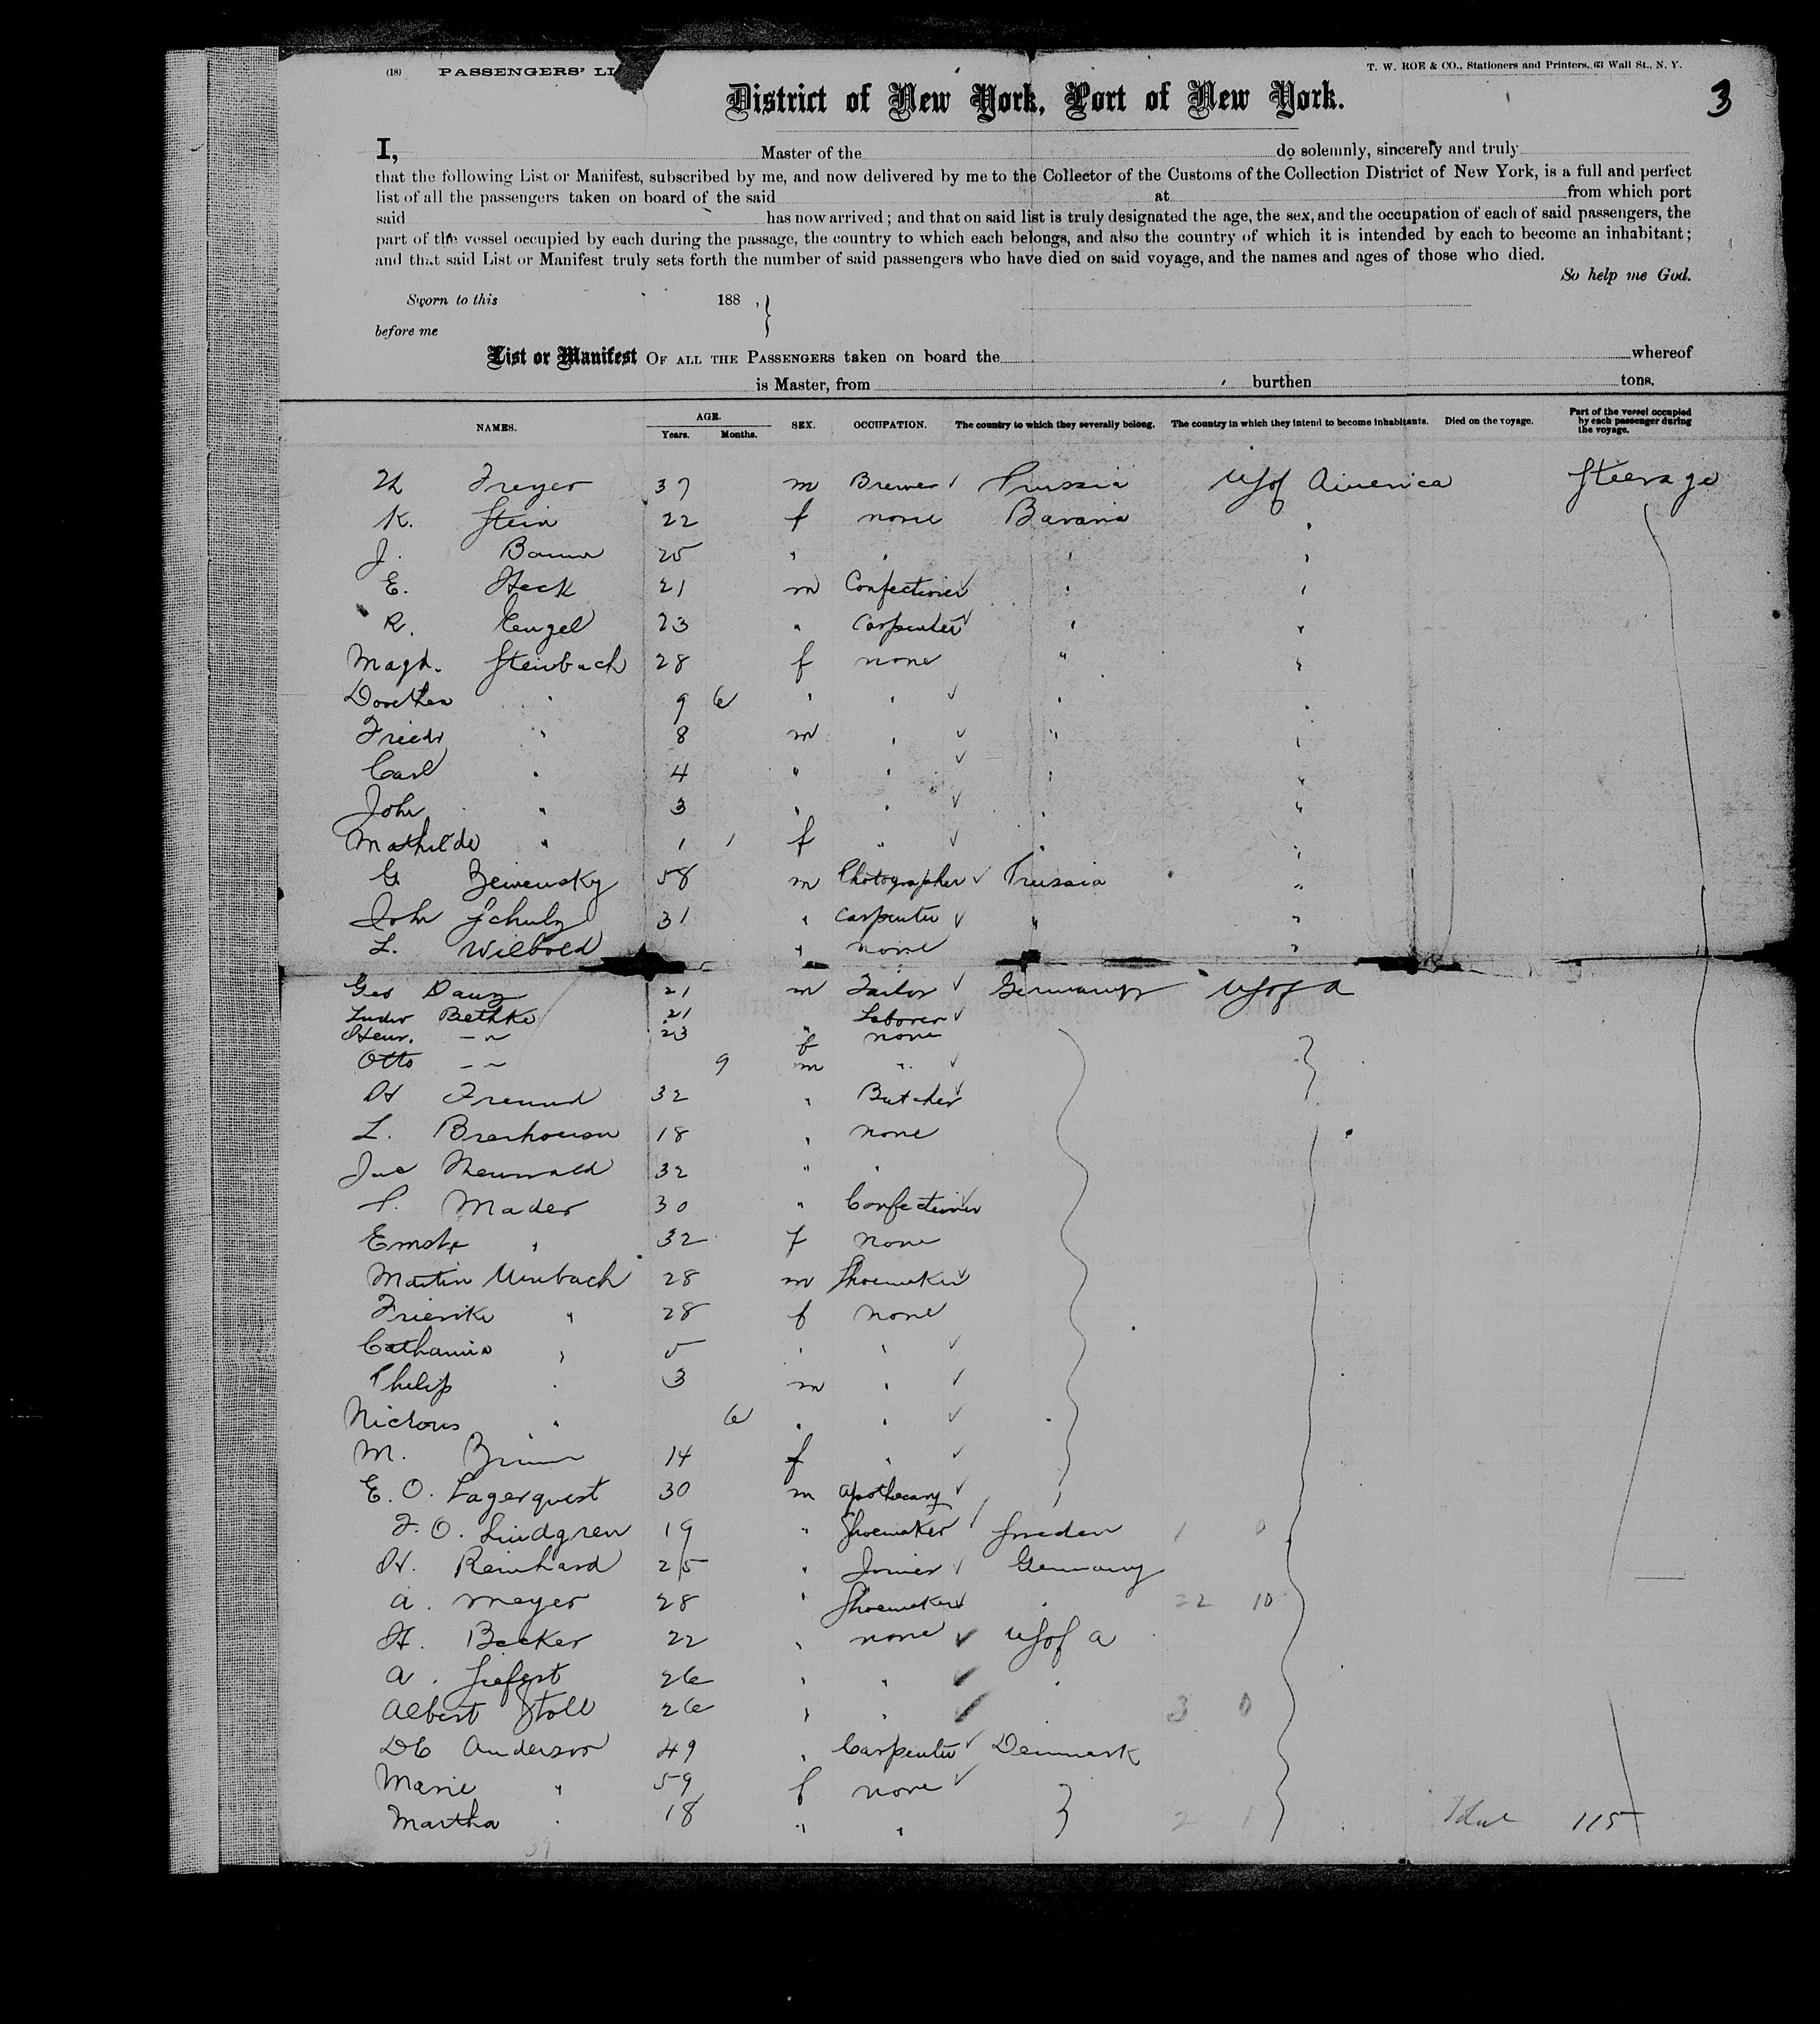 (18) PASSENGERS' LI
T. W. ROE & CO., Stationers and Printers, 63 Wall St., N. Y.
District of New York, Port of New York.
3
I, Master of the do solemnly, sincerely and truly
that the following List or Manifest, subscribed by me, and now delivered by me to the Collector of the Customs of the Collection District of New York, is a full and perfect
list of all the passengers taken on board of the said at from which port
said has now arrived; and that on said list is truly designated the age, the sex, and the occupation of each of said passengers, the
part of the vessel occupied by each during the passage, the country to which each belongs, and also the country of which it is intended by each to become an inhabitant;
and that said List or Manifest truly sets forth the number of said passengers who have died on said voyage, and the names and ages of those who died.
So help me God.
Sworn to this 188 ,
before me
List or Manifest OF ALL THE PASSENGERS taken on board the whereof
is Master, from burthen tons.
NAMES. AGE. Years. Months. SEX. OCCUPATION. The country to which they severally belong. The country in which they intend to become inhabitants. Died on the voyage. Part of the vessel occupied by each passenger during the voyage.
Freyer 37 m Brewer Prussia US of America Steerage
K. Stein 22 f none Bavaria "
J. 25 " " " "
E. Heck 21 m Confectioner " "
R. 23 " Carpenter " "
Magd. Steinbach 28 f none " "
Dorothea " 9 6 " " " "
Friedr " 8 m " " "
Carl " 4 " " " "
John " 3 " " " "
Mathilde " 1 1 f " " "
G. 58 m Photographer Prussia "
John Schulz 31 " Carpenter " "
L. Wilbold " none "
Geo Danz 21 m Tailor Germany US of A
Bethke 21 " Laborer
Henr. - " 23 f none
Otto - " 9 m "
H Freund 32 " Butcher
L. 18 " none
32 " "
P. Mader 30 " Confectioner
" 32 f none
Martin 28 m Shoemaker
" 28 f none
" 5 " "
Philip " 3 m "
" 6 " "
M. 14 f "
E. O. Lagerquist 30 m apothecary
F. O. Lindgren 19 " Shoemaker Sweden 1 0
H. Reinhard 25 " Joiner Germany
A. Meyer 28 " Shoemaker " 22 10
H. Becker 22 " none US of A
A. 26 " " "
Albert Stoll 26 " " " 3 0
Anderson 49 " Carpenter Denmark
Marie " 59 f none
Martha " 18 " " 2 1 Total 115
39